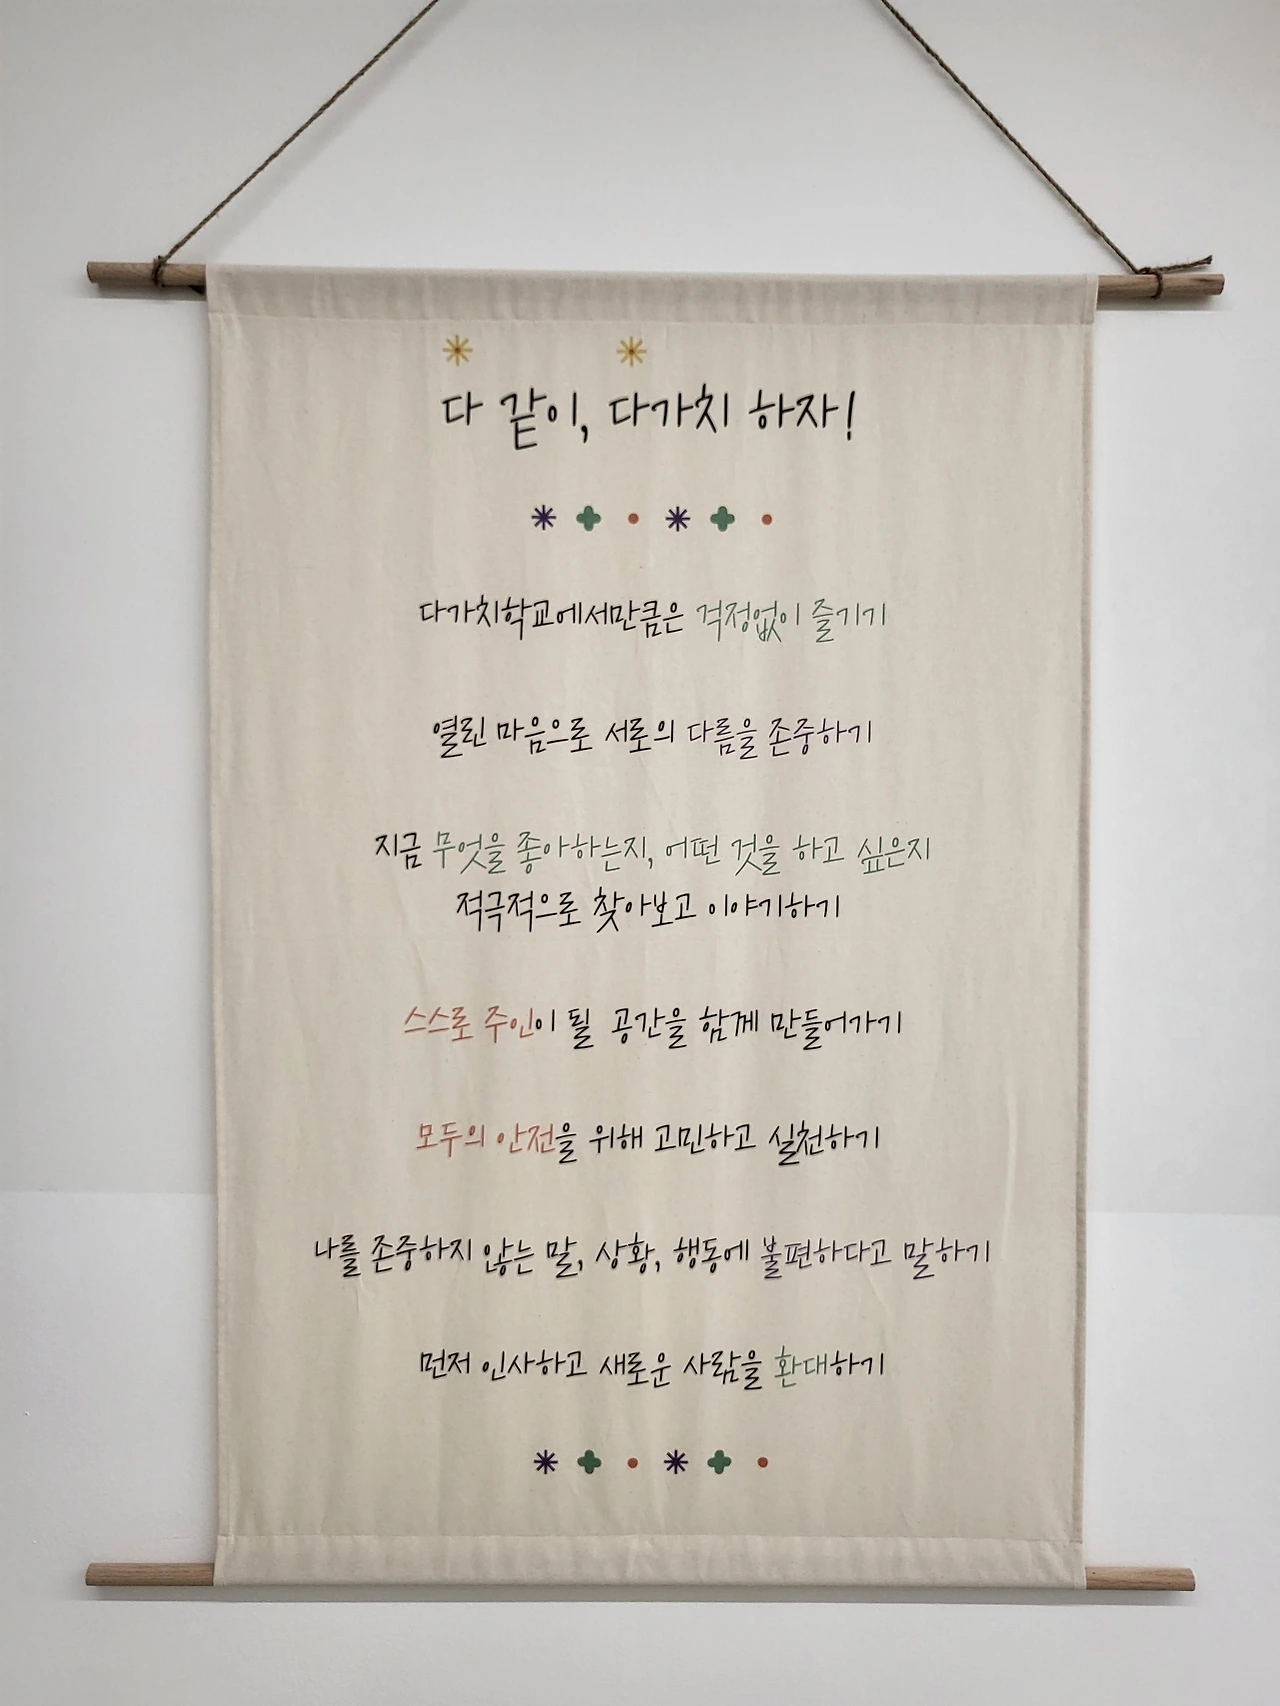 다 같이, 다가치 하자!
다가치학교에서만큼은 걱정없이 즐기기
열린 마음으로 서로의 다름을 존중하기
지금 무엇을 좋아하는지, 어떤 것을 하고 싶은지
적극적으로 찾아보고 이야기하기
스스로 주인이 될 공간을 함께 만들어가기
모두의 안전을 위해 고민하고 실천하기
나를 존중하지 않는 말, 상황, 행동에 불편하다고 말하기
먼저 인사하고 새로운 사람을 환대하기